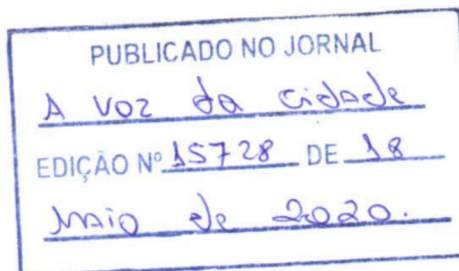 PUBLICADO NO JORNAL
A VOZ da cidade
EDIÇÃO Nº 15728 DE 18
maio de 2020.